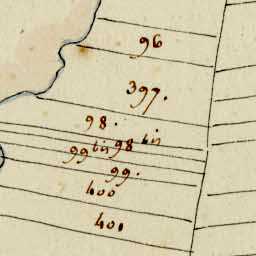 96
397.
98.
98 bis
99 bis
99.
400
401